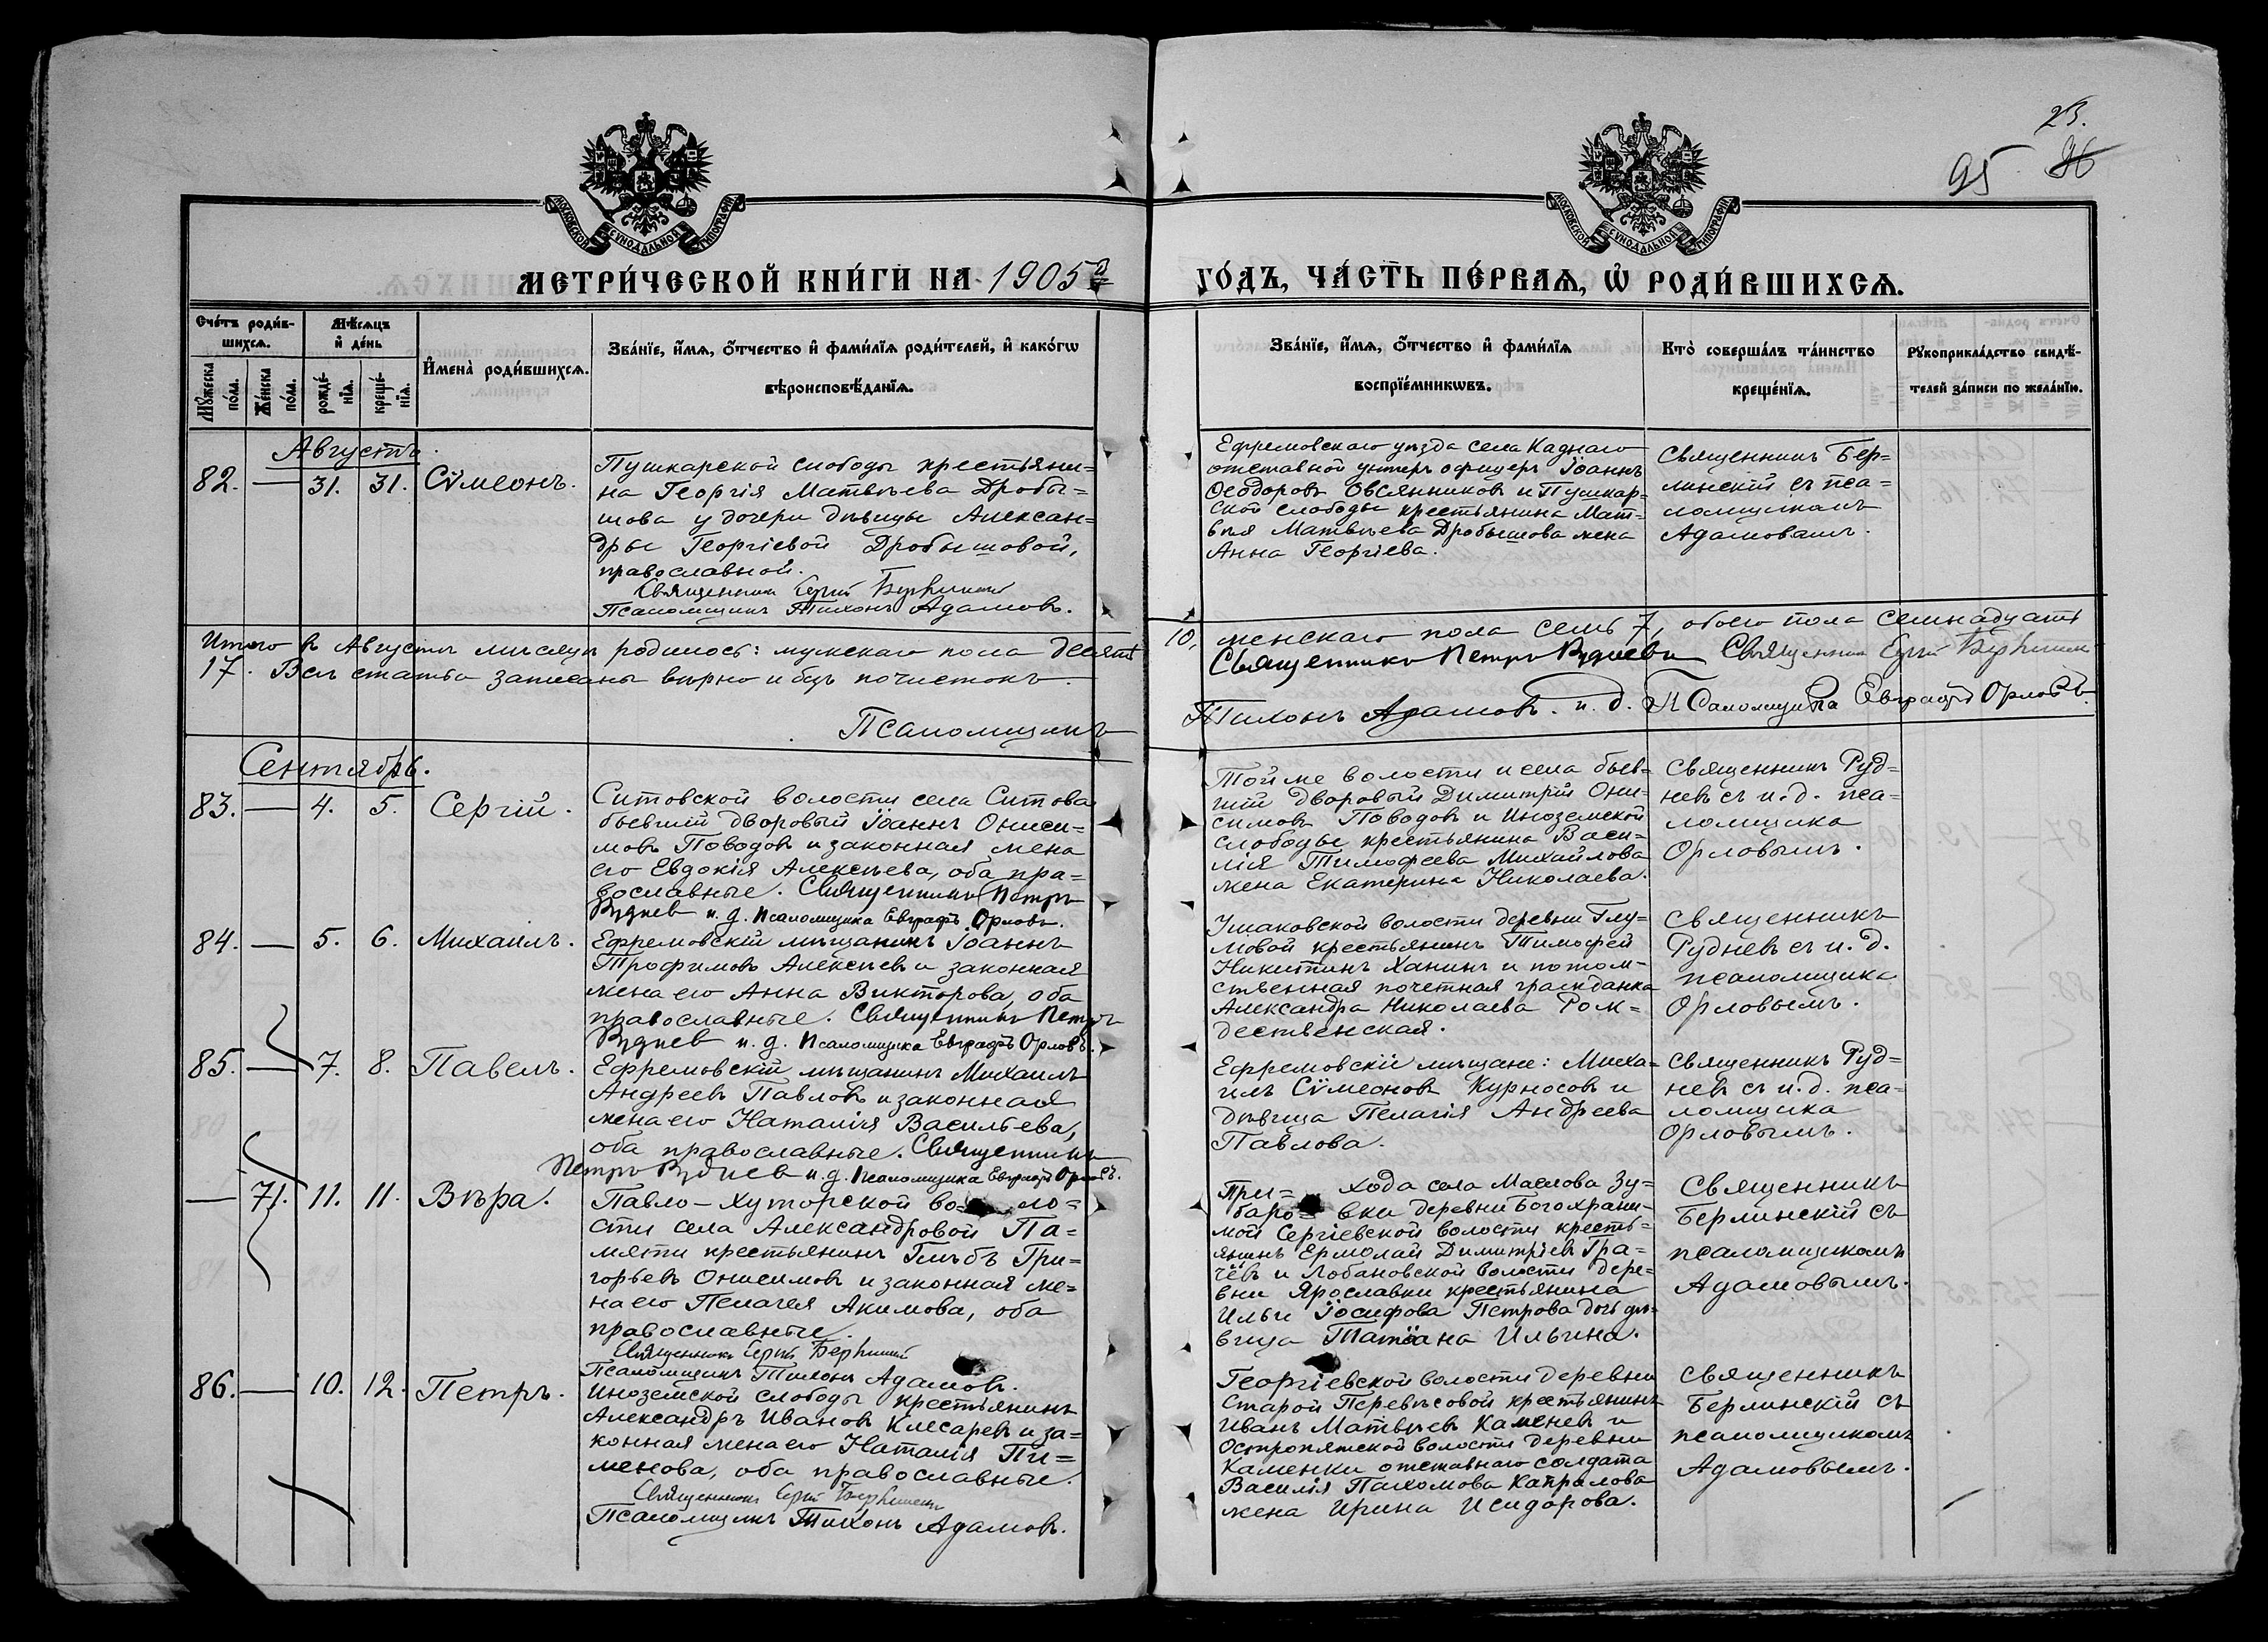 23.
95 96
МОСКОВСКОЙ СѴНОДАЛЬНОЙ ТИПОГРАФІИ
МОСКОВСКОЙ СѴНОДАЛЬНОЙ ТИПОГРАФІИ
МЕТРИ́ЧЕСКОЙ КНИ́ГИ НА 1905й
ГО́ДЪ, ЧА́СТЬ ПЕ́РВАѦ, Ѡ РОДИ́ВШИХСѦ.
Сче́тъ роди́в-
шихсѧ.
Мꙋ́жеска по́ла.
Же́нска по́ла.
Мѣ́сѧцъ
и де́нь
рожде́-
нїѧ.
креще́-
нїѧ.
Имена̀ роди́вшихсѧ.
Зва́нїе, и́мѧ, ѻ́тчество и фами́лїѧ роди́телей, и како́гѡ
вѣроисповѣ́данїѧ.
Зва́нїе, и́мѧ, ѻ́тчество и фами́лїѧ
воспрїе́мникѡвъ.
Кто̀ соверша́лъ та́инство
креще́нїѧ.
Рꙋкоприкла́дство свидѣ́-
телей за́писи по жела́нїю.
Августъ.
82. — 31. 31. Сѵмеонъ.
Пушкарской слободы крестьяни=
на Георгія Матвѣева Дробы=
шова у дочери дѣвицы Алексан=
дры Георгіевой Дробышовой,
православной.
Священникъ Сергій Берлинскій
Псаломщикъ Тихонъ Адамовъ.
Ефремовскаго уѣзда села Каднаго
отставной унтеръ офицеръ Іоаннъ
Ѳеодоровъ Овсянниковъ и Пушкар=
ской слободы крестьянина Мат=
вѣя Матвѣева Дробышова жена
Анна Георгіева.
Священникъ Бер=
линскій съ пса=
ломщикомъ
Адамовымъ.
Итого въ Августѣ мѣсяцѣ родилось: мужскаго пола десять
10, женскаго пола семь 7, обоего пола семнадцать
17. Всѣ статьи записаны вѣрно и безъ почистокъ.
Священникъ Петръ Рудневъ Священникъ Сергій Берлинскій
Псаломщикъ
Тихонъ Адамовъ. и. д. Псаломщика Евграфъ Орловъ.
Сентябрь.
83. — 4. 5. Сергій.
Ситовской волости села Ситова
бывшій дворовый Іоаннъ Ониси=
мовъ Поводовъ и законная жена
его Евдокія Алексѣева, оба пра=
вославные. Священникъ Петръ
Рудневъ и. д. Псаломщика Евграфъ Орловъ.
Той же волости и села быв=
шій дворовый Димитрій Они=
симовъ Поводовъ и Иноземской
слободы крестьянина Васи=
лія Тимофеева Михайлова
жена Екатерина Николаева.
Священникъ Руд=
невъ съ и. д. пса=
ломщика
Орловымъ.
84. — 5. 6. Михаилъ.
Ефремовскій мѣщанинъ Іоаннъ
Трофимовъ Алексѣевъ и законная
жена его Анна Викторова, оба
православные. Священникъ Петръ
Рудневъ и. д. Псаломщика Евграфъ Орловъ.
Ушаковской волости деревни Глу=
ховой крестьянинъ Тимофей
Никитинъ Ханинъ и потом=
ственная почетная гражданка
Александра Николаева Рож=
дественская.
Священникъ
Рудневъ съ и. д.
псаломщика
Орловымъ.
85. — 7. 8. Павелъ.
Ефремовскій мѣщанинъ Михаилъ
Андреевъ Павловъ и законная
жена его Наталія Васильева,
оба православные. Священникъ
Петръ Рудневъ и. д. Псаломщика Евграфъ Орловъ.
Ефремовскіе мѣщане: Миха=
илъ Сѵмеоновъ Курносовъ и
дѣвица Пелагія Андреева
Павлова.
Священникъ Руд=
невъ съ и. д. пса=
ломщика
Орловымъ.
— 71. 11. 11. Вѣра.
Павло-Хуторской во= ло=
сти села Александровой Па=
мяти крестьянинъ Глѣбъ Гри=
горьевъ Онисимовъ и законная же=
на его Пелагея Акимова, оба
православные.
Священникъ Сергій Берлинскій
Псаломщикъ Тихонъ Адамовъ.
При= хода села Маслова Зу=
баро= вки деревни Богохрани=
мой Сергіевской волости кресть=
янинъ Ермолай Димитріевъ Гра=
чёвъ и Лобановской волости дере=
вни Ярославки крестьянина
Ильи Іосифова Петрова дочь дѣ=
вица Татіана Ильина.
Священникъ
Берлинскій съ
псаломщикомъ
Адамовымъ.
86. — 10. 12. Петръ.
Иноземской слободы крестьянинъ
Александръ Ивановъ Клесаревъ и за=
конная жена его Наталія Пи=
менова, оба православные.
Священникъ Сергій Берлинскій
Псаломщикъ Тихонъ Адамовъ.
Георгіевской волости деревни
Старой Перевѣсовой крестьянинъ
Иванъ Матвѣевъ Каменевъ и
Остропятской волости деревни
Каменки отставнаго солдата
Василія Пахомова Капралова
жена Ирина Исидорова.
Священникъ
Берлинскій съ
псаломщикомъ
Адамовымъ.